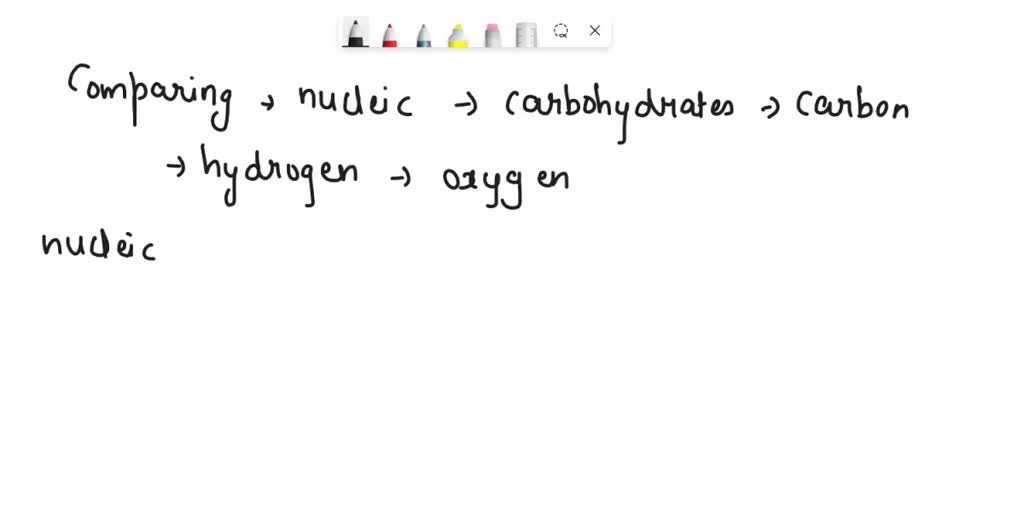 Comparing → nucleic → carbohydrates → carbon
→ hydrogen → oxygen
nucleic